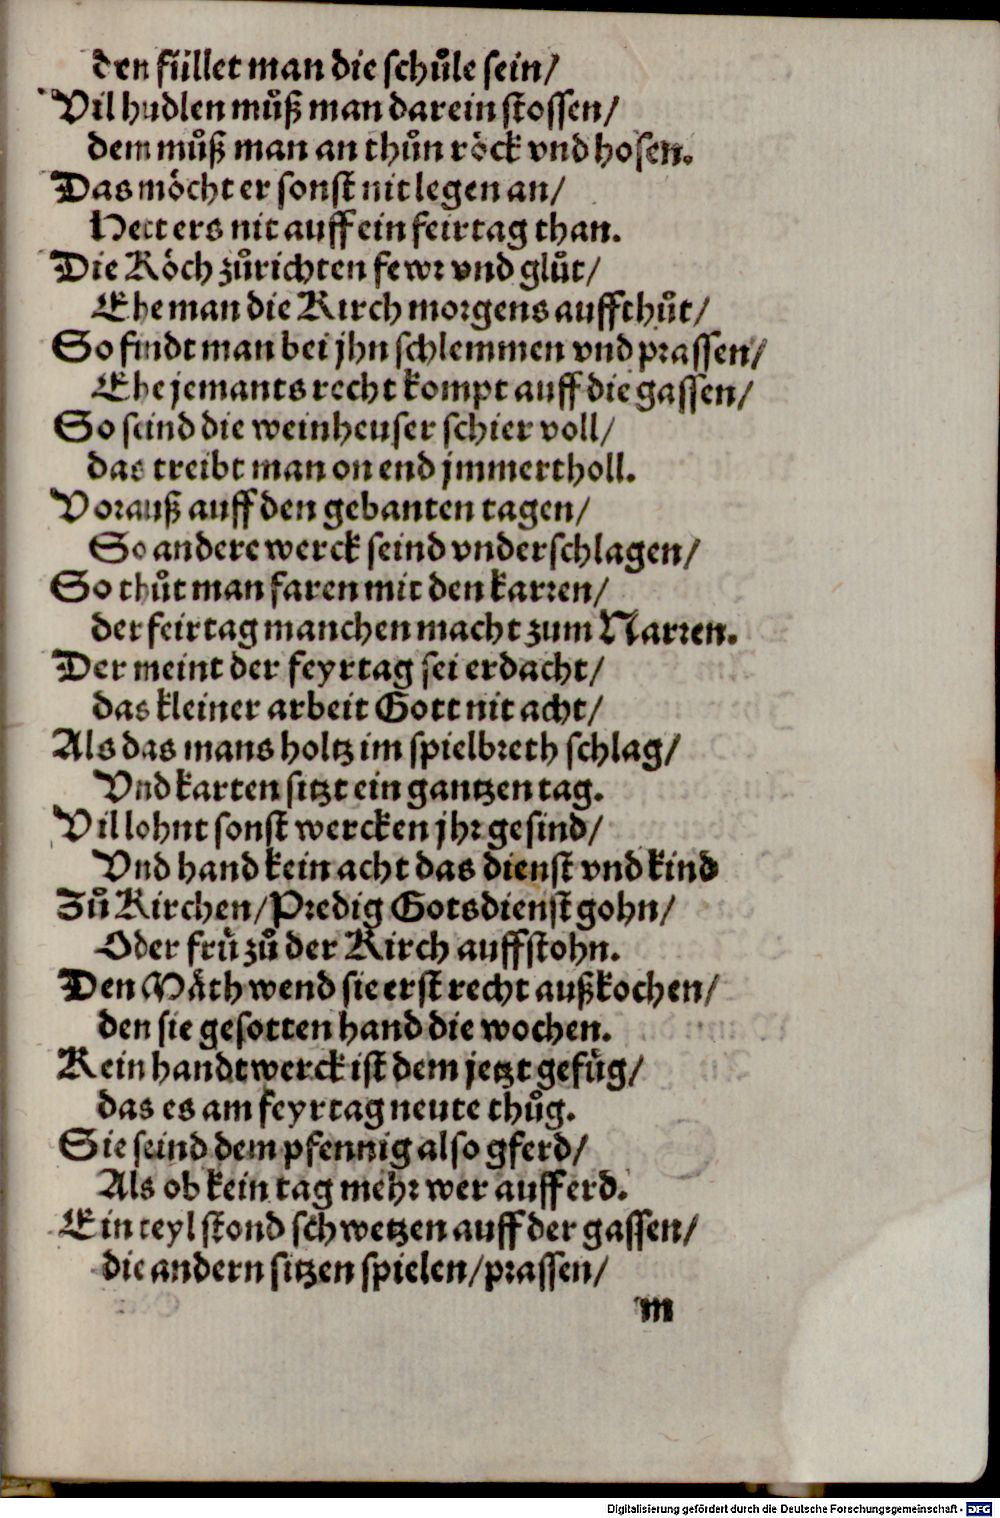 den füllet man die schůle sein/
Vil hudlen můß man darein stossen/
dem můß man an thůn röck vnd hosen.
Das möcht er sonst nit legen an/
Hett ers nit auff ein feirtag than.
Die Köch zůrichten fewr vnd glůt/
Ehe man die Kirch morgens auffthůt/
So findt man bei jhn schlemmen vnd prassen/
Ehe jemants recht kompt auff die gassen/
So seind die weinheuser schier voll/
das treibt man on end jmmertholl.
Vorauß auff den gebanten tagen/
So andere werck seind vnderschlagen/
So thůt man faren mit den karren/
der feirtag manchen macht zum Narren.
Der meint der feyrtag sei erdacht/
das kleiner arbeit Gott nit acht/
Als das mans holtz im spielbreth schlag/
Vnd karten sitzt ein gantzen tag.
Vil lohnt sonst wercken jhr gesind/
Vnd hand kein acht das dienst vnd kind
Zů Kirchen/Predig Gotsdienst gohn/
Oder frü zů der Kirch auffstohn.
Den Mäth wend sie erst recht außkochen/
den sie gesotten hand die wochen.
Kein handtwerck ist dem jetzt gefüg/
das es am feyrtag neute thůg.
Sie seind dem pfennig also gferd/
Als ob kein tag mehr wer auff erd.
Ein teyl stond schwetzen auff der gassen/
die andern sitzen spielen/prassen/
m
Digitalisierung gefördert durch die Deutsche Forschungsgemeinschaft - DFG